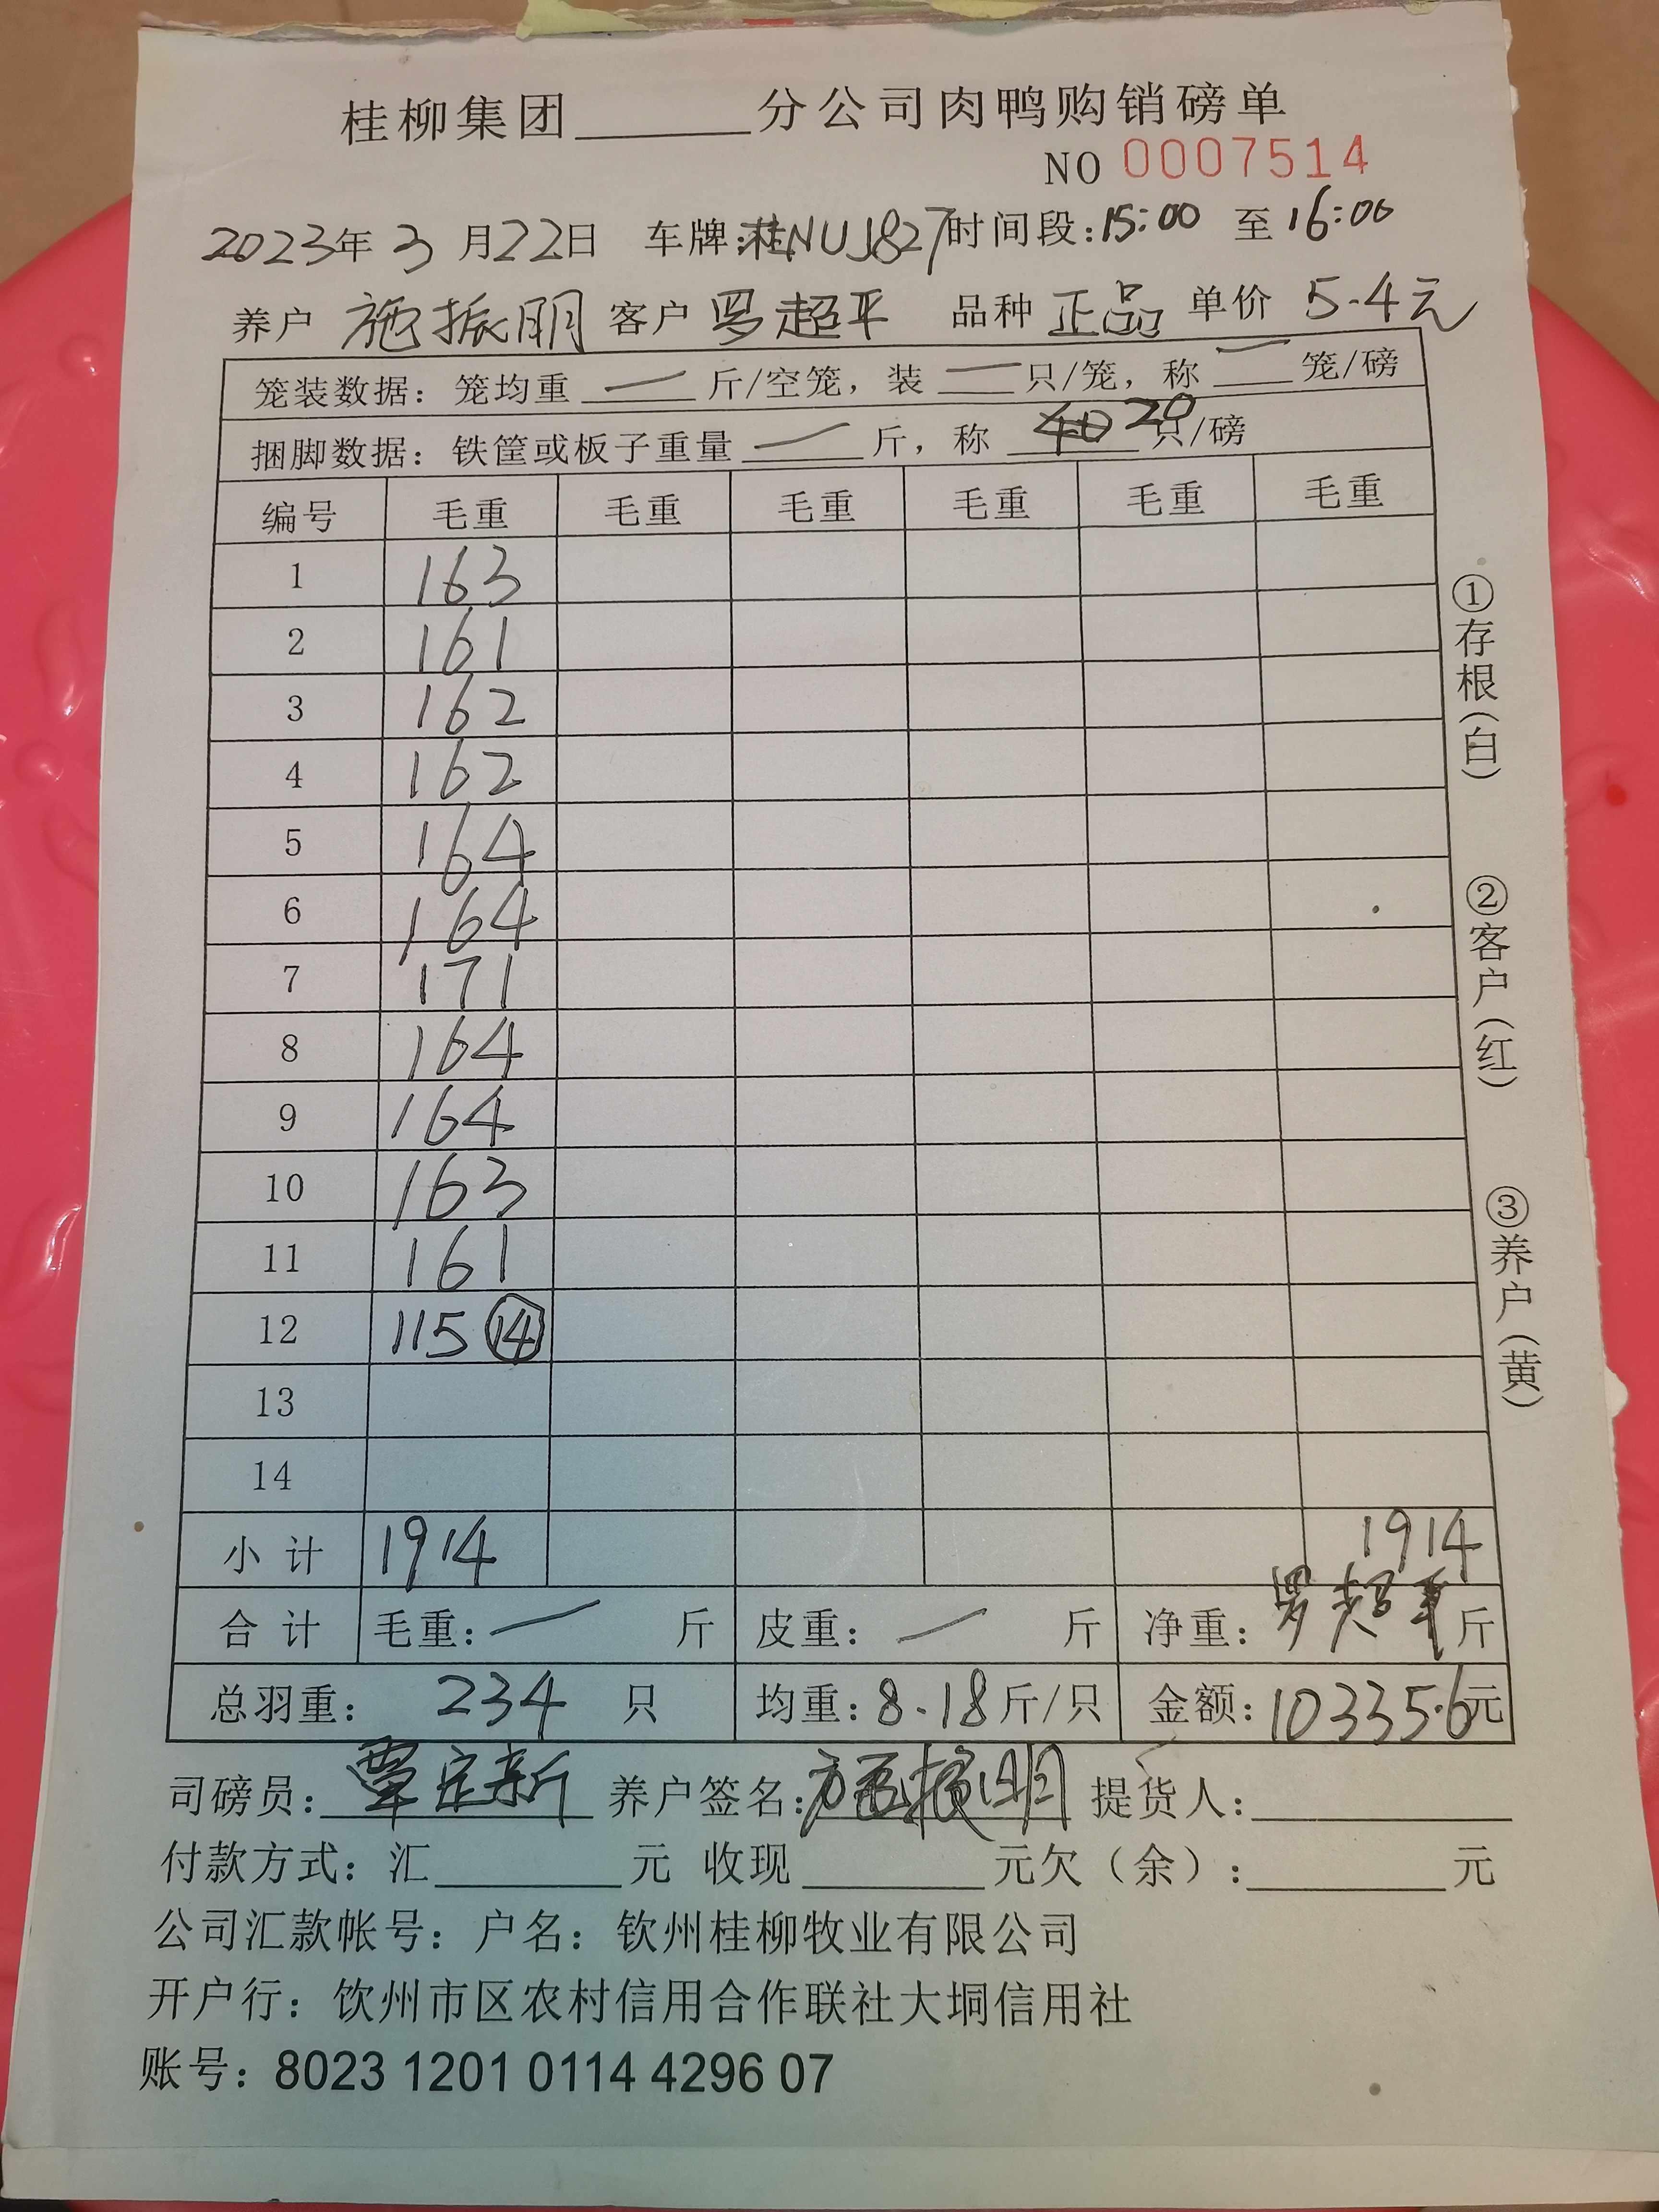 桂柳集团______分公司肉鸭购销磅单
NO 0007514
2023年 3 月22日 车牌:桂NUJ827 时间段:15:00 至 16:00
养户 施振明 客户 罗超平 品种 正品 单价 5.4元
笼装数据：笼均重 — 斤/空笼，装 — 只/笼，称 — 笼/磅
捆脚数据：铁筐或板子重量 — 斤，称 40 20 只/磅
编号 毛重 毛重 毛重 毛重 毛重 毛重
1 163
2 161
3 162
4 162
5 164
6 164
7 171
8 164
9 164
10 163
11 161
12 115 ⑭
13
14
小计 1914 1914
合计 毛重： — 斤 皮重： — 斤 净重：罗超平 斤
总羽重： 234 只 均重：8.18斤/只 金额：10335.6元
司磅员：覃定新 养户签名：施振明 提货人：______
付款方式：汇______元 收现______元欠（余）：______元
公司汇款帐号：户名：钦州桂柳牧业有限公司
开户行：钦州市区农村信用合作联社大垌信用社
账号：8023 1201 0114 4296 07
①存根（白）
②客户（红）
③养户（黄）